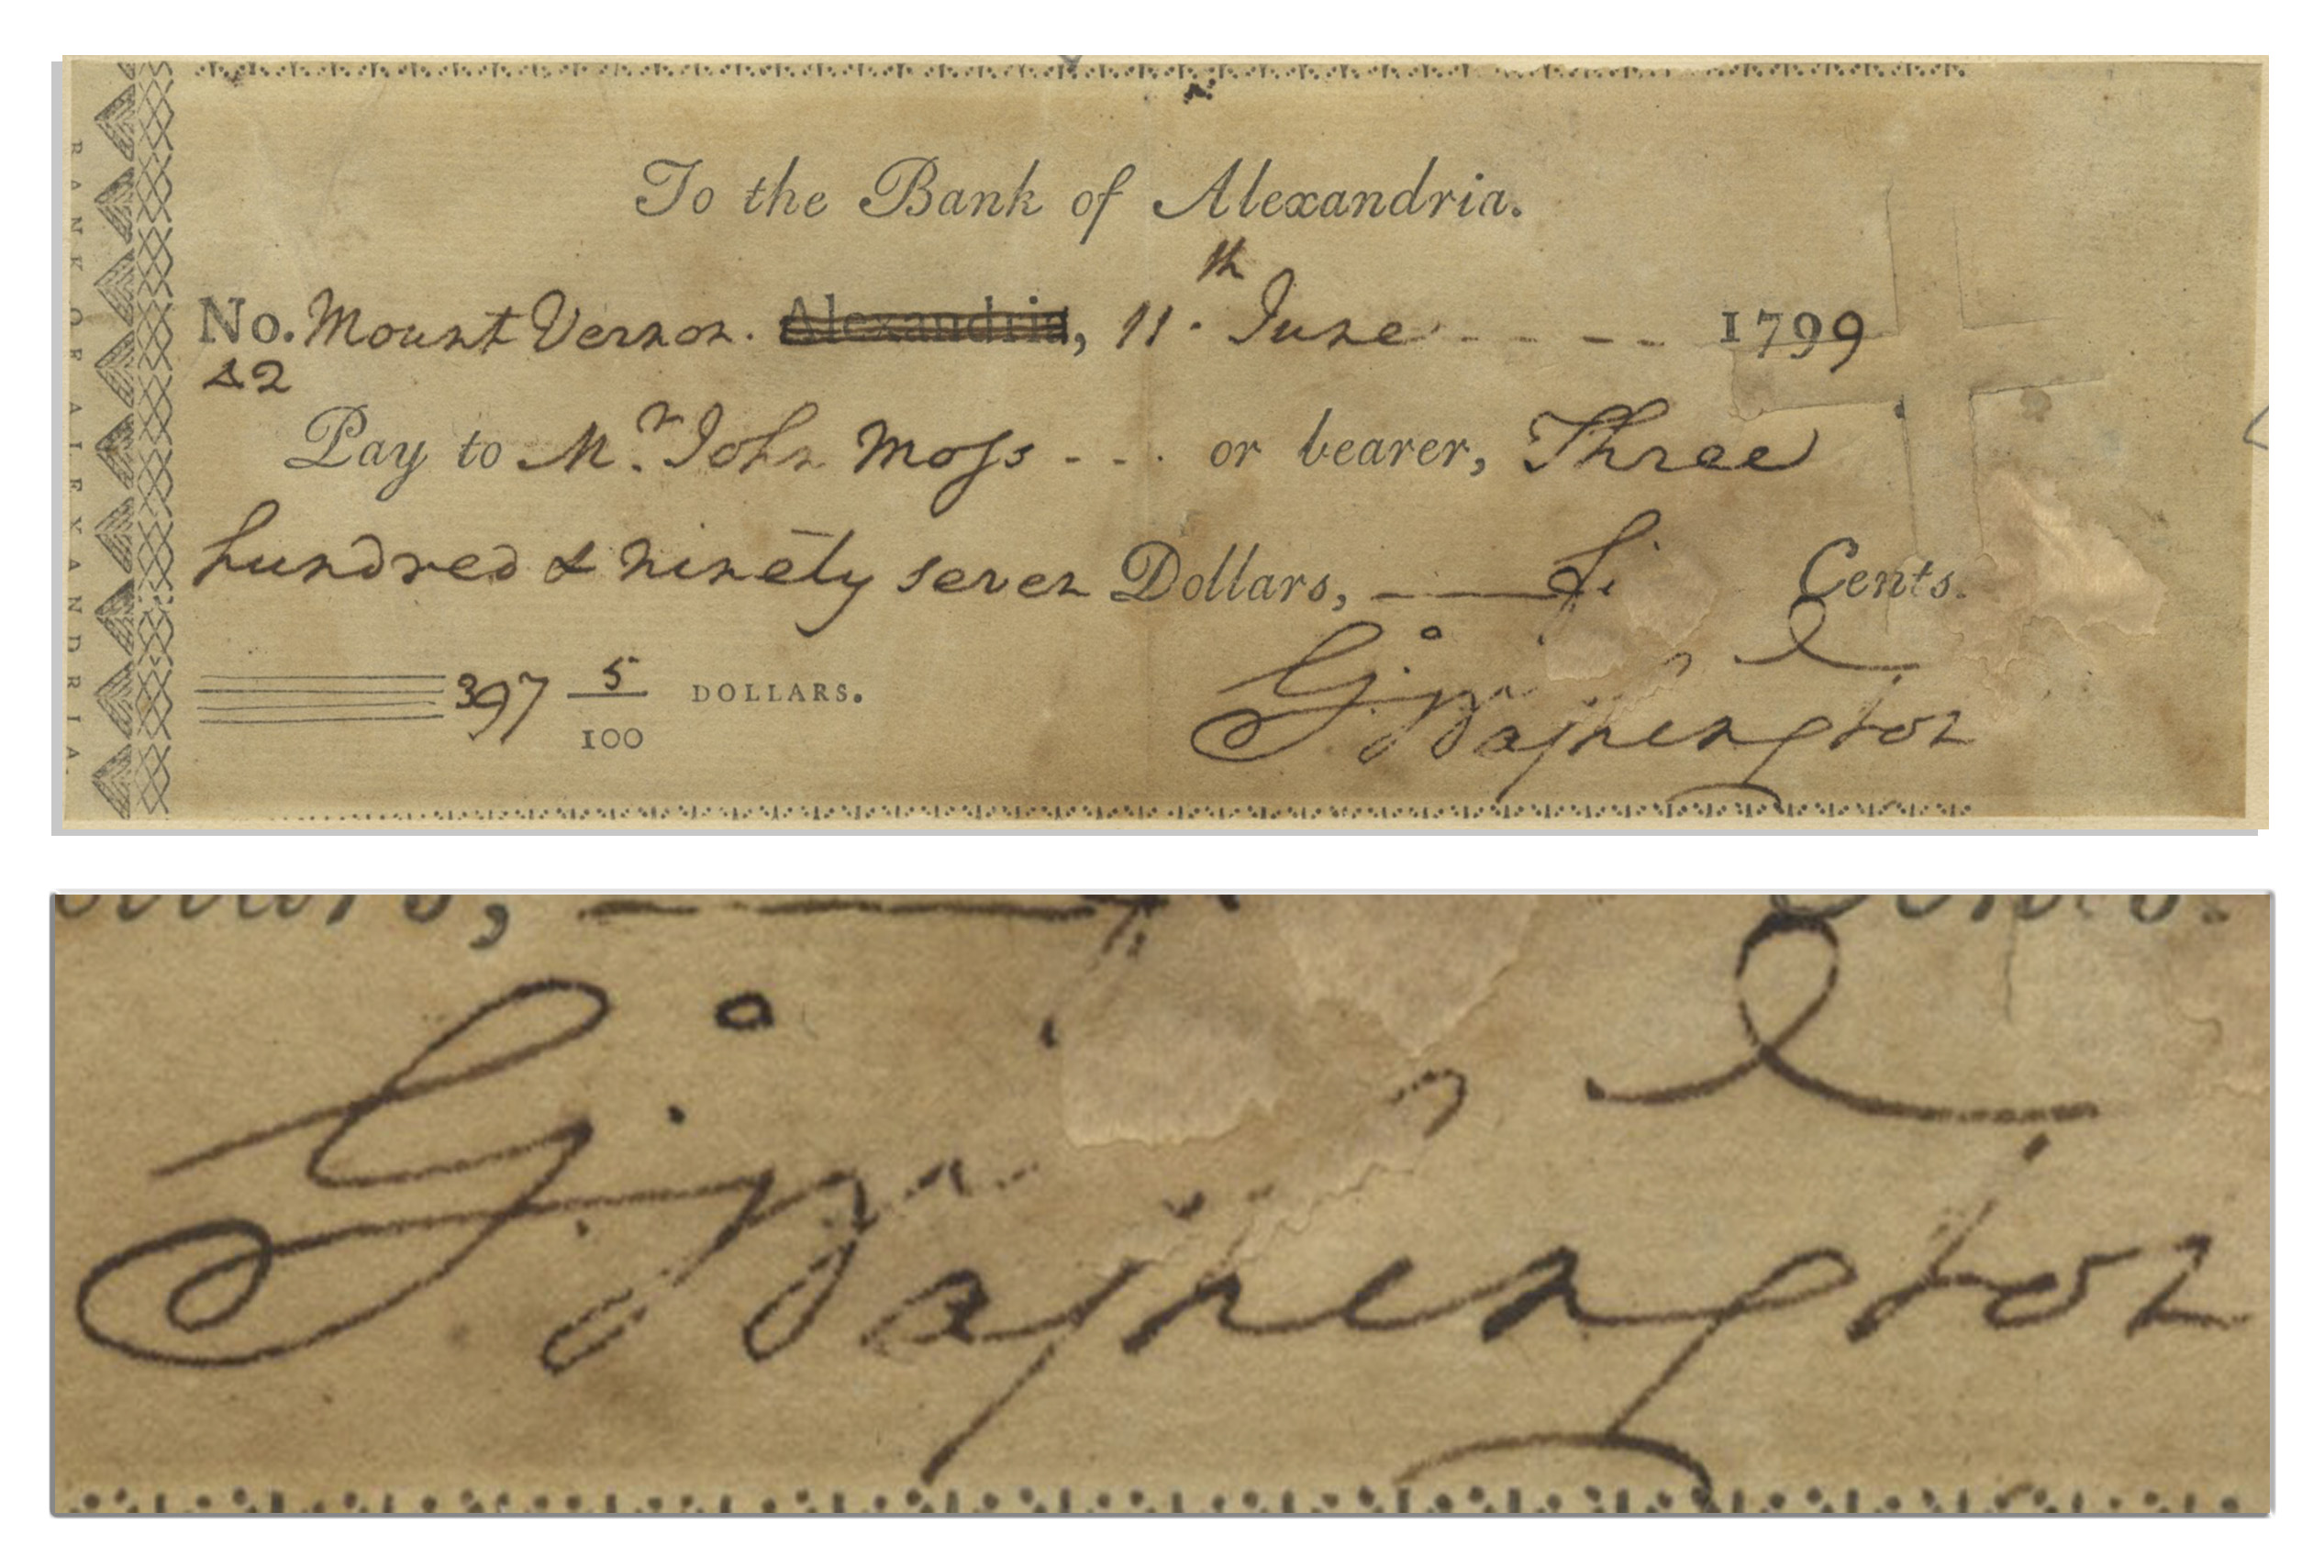 BANK OF ALEXANDRIA.
To the Bank of Alexandria.
No. Mount Vernon. Alexandria, 11.th June 1799
Pay to Mr. John Moss - - - or bearer, Three
hundred & ninety seven Dollars, Cents.
397 5/100 DOLLARS.
Go: Washington
Go: Washington